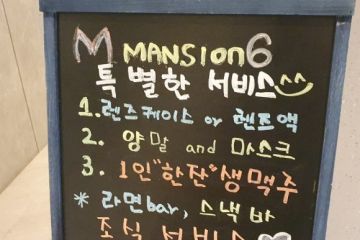 M MANSION6
특별한 서비스^^
1. 렌즈케이스 or 렌즈액
2. 양말 and 마스크
3. 1인"한잔"생맥주
* 라면bar, 스낵 바
조식 서비스♡